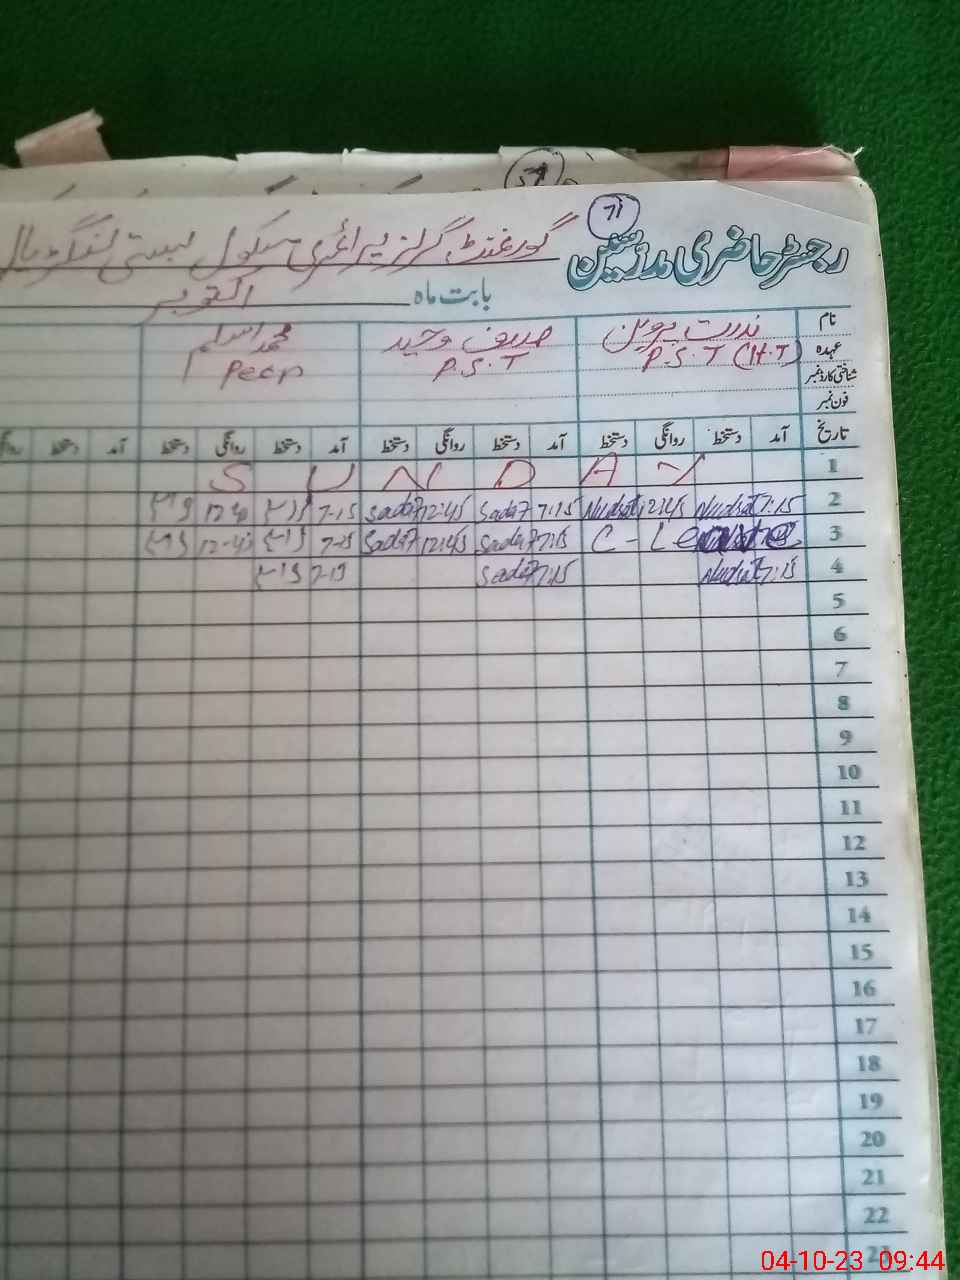 71
رجسٹر حاضری مدرسین گورنمنٹ گرلز پرائمری سکول بستی
بابت ماہ اکتوبر
نام ندرت پروین صدف وحید محمد اسلم
عہدہ P.S.T (H.T) P.S.T Peon
شناختی کارڈ نمبر
فون نمبر
تاریخ آمد دستخط روانگی دستخط آمد دستخط روانگی دستخط آمد دستخط روانگی دستخط آمد دستخط روانگی
1 SUNDAY
2 7:15 Nudrat 12:45 Nudrat 7:15 Sadaf 12:45 Sadaf 7-15
3 C-Leave 7:15 Sadaf 12:45 Sadaf 12-45
4 7:15 Nudrat 7:15 Sadaf
5
6
7
8
9
10
11
12
13
14
15
16
17
18
19
20
21
22
23
04-10-23 09:44